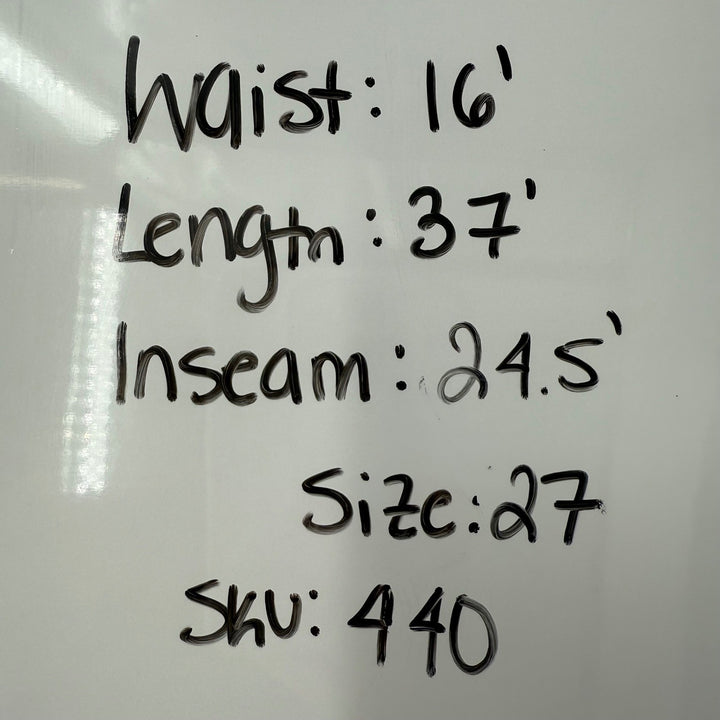 Waist: 16'
Length: 37'
Inseam: 24.5'
Size: 27
Sku: 440